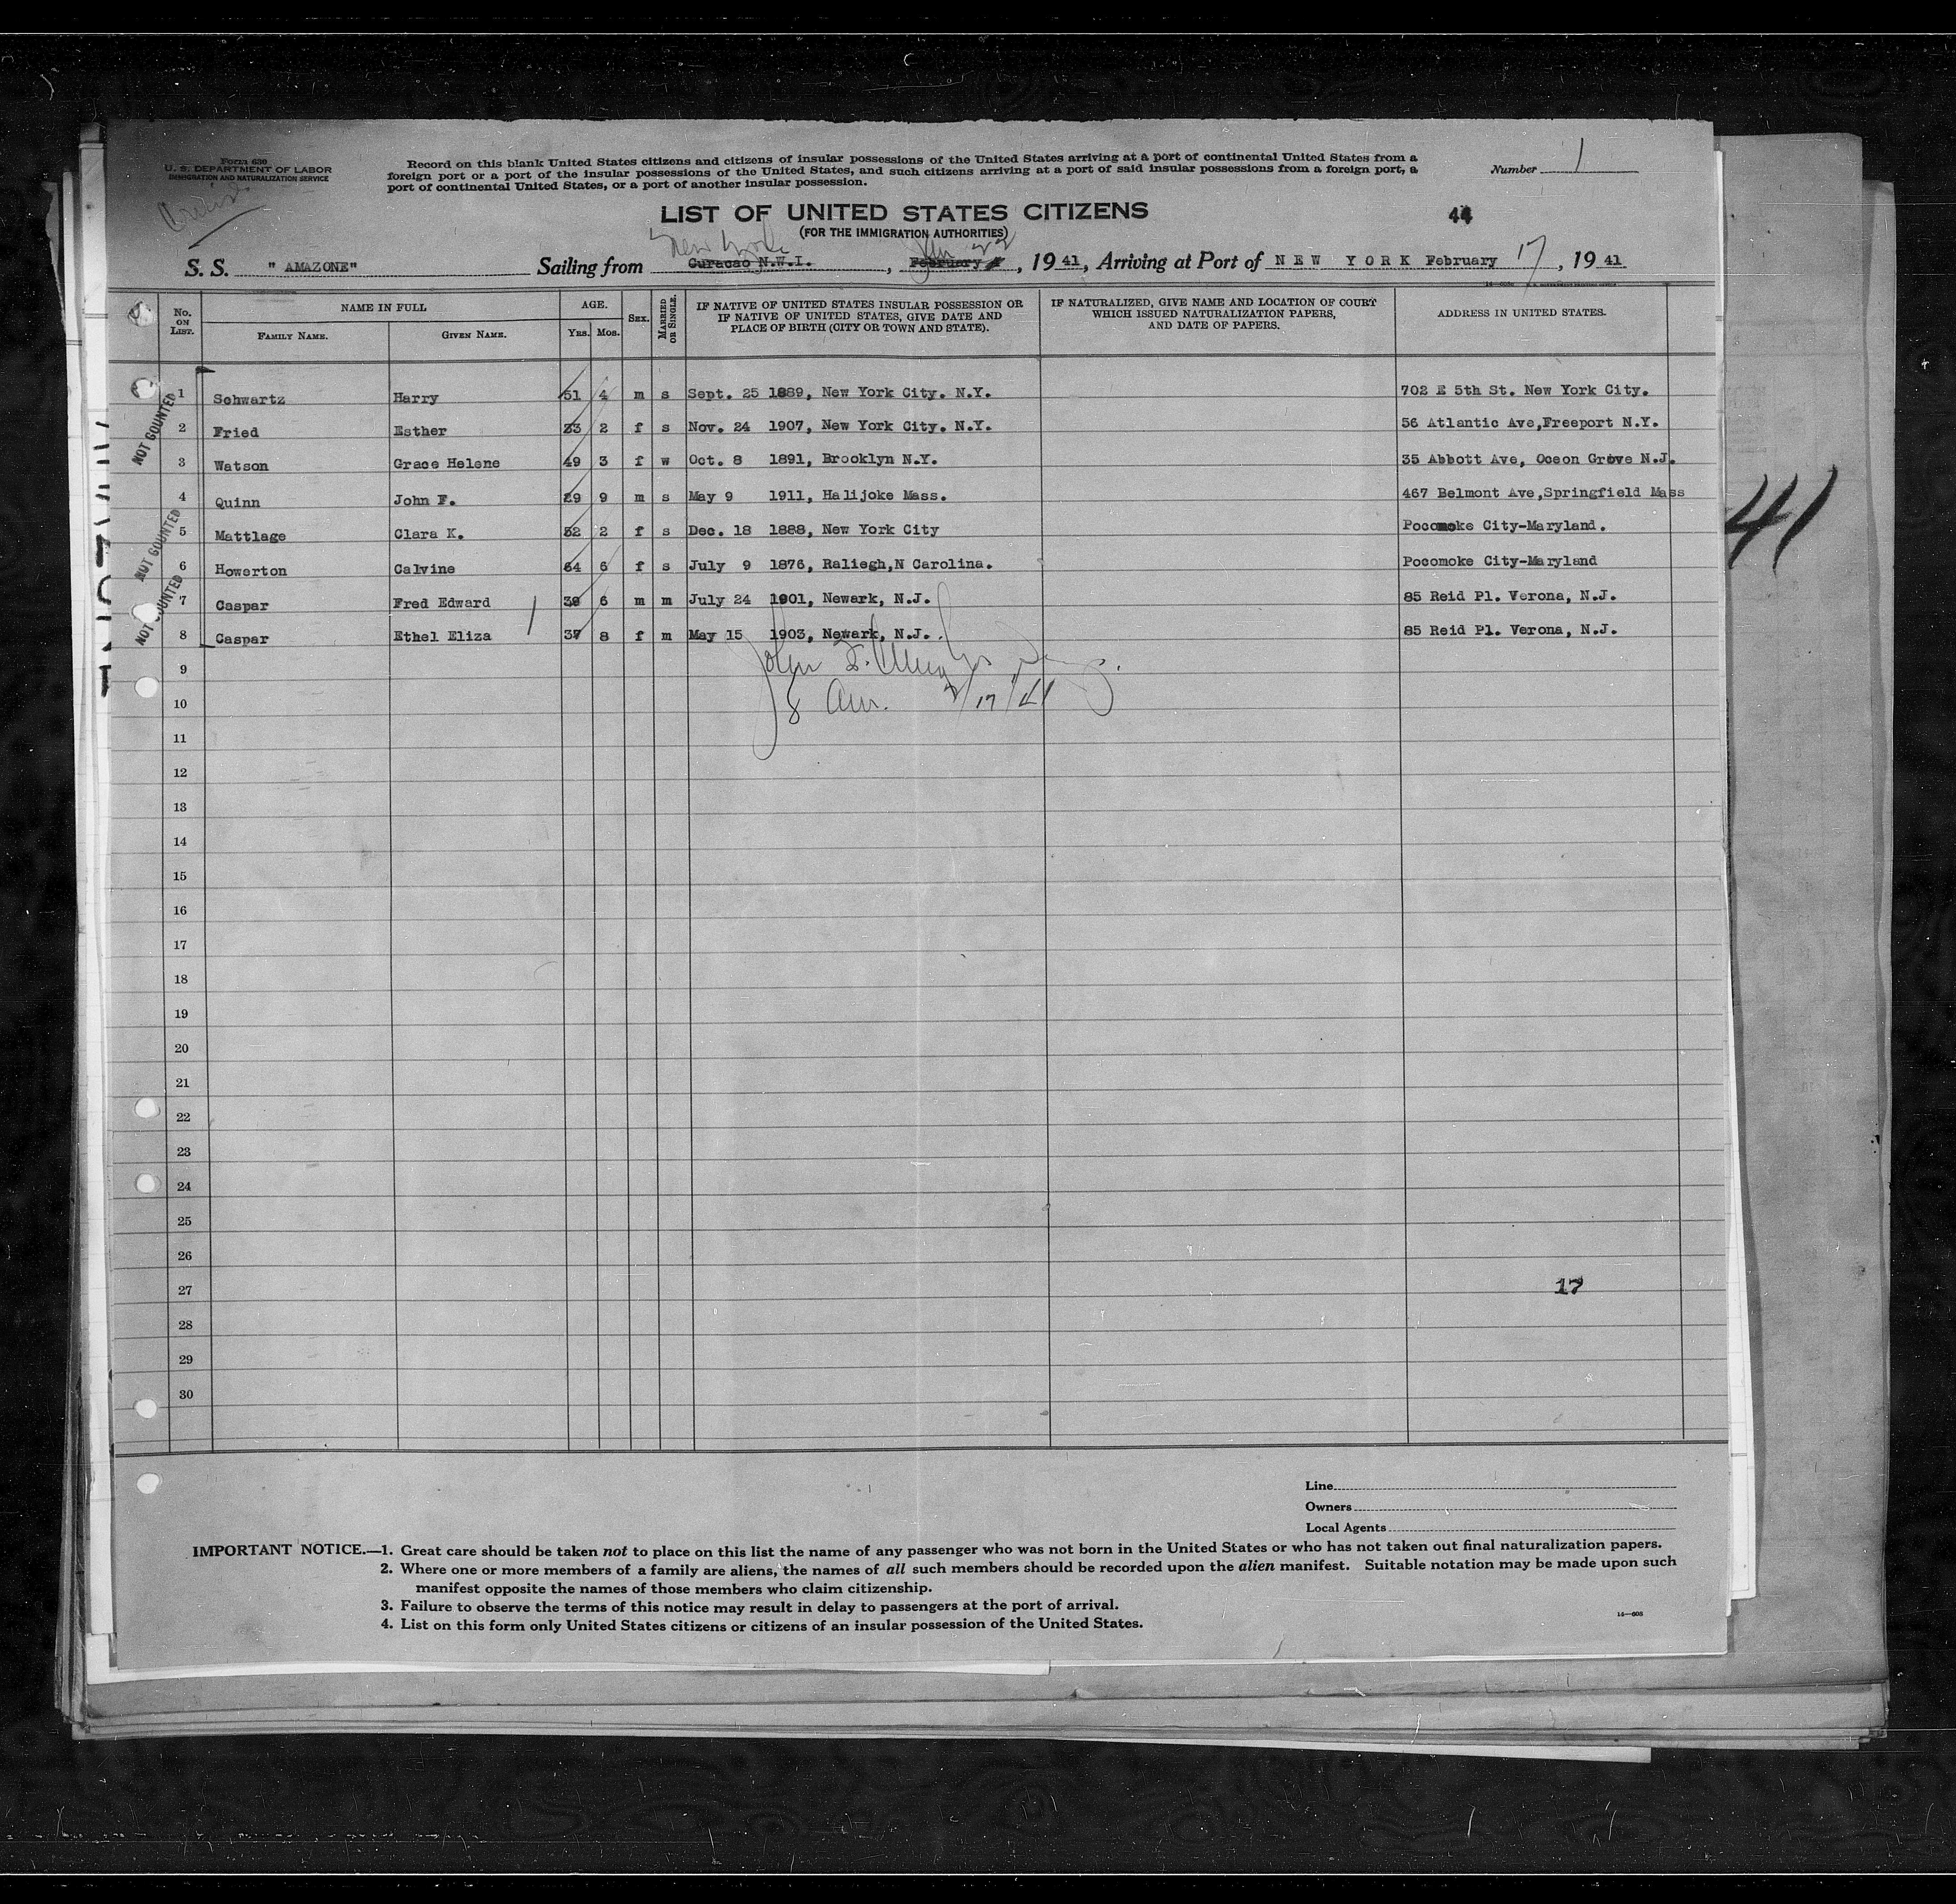 Form 630
U. S. DEPARTMENT OF LABOR
IMMIGRATION AND NATURALIZATION SERVICE
Record on this blank United States citizens and citizens of insular possessions of the United States arriving at a port of continental United States from a
foreign port or a port of the insular possessions of the United States, and such citizens arriving at a port of said insular possessions from a foreign port, a
port of continental United States, or a port of another insular possession.
Number 1
LIST OF UNITED STATES CITIZENS
(FOR THE IMMIGRATION AUTHORITIES)
44
New York Jan 22
S. S. " AMAZONE" Sailing from Curacao N.W.I. , February , 19 41, Arriving at Port of NEW YORK February 17, 19 41
No. ON LIST. NAME IN FULL FAMILY NAME. GIVEN NAME. AGE. YRS. MOS. SEX. MARRIED OR SINGLE. IF NATIVE OF UNITED STATES INSULAR POSSESSION OR IF NATIVE OF UNITED STATES, GIVE DATE AND PLACE OF BIRTH (CITY OR TOWN AND STATE). IF NATURALIZED, GIVE NAME AND LOCATION OF COURT WHICH ISSUED NATURALIZATION PAPERS, AND DATE OF PAPERS. ADDRESS IN UNITED STATES.
1 Schwartz Harry 51 4 m s Sept. 25 1889, New York City. N.Y. 702 E 5th St. New York City.
2 Fried Esther 33 2 f s Nov. 24 1907, New York City. N.Y. 56 Atlantic Ave,Freeport N.Y.
3 Watson Grace Helene 49 3 f w Oct. 8 1891, Brooklyn N.Y. 35 Abbott Ave, Ocean Grove N.J.
4 Quinn John F. 29 9 m s May 9 1911, Halijoke Mass. 467 Belmont Ave,Springfield Mass
5 Mattlage Clara K. 52 2 f s Dec. 18 1888, New York City Pocomoke City-Maryland.
6 Howerton Calvine 64 6 f s July 9 1876, Raliegh,N Carolina. Pocomoke City-Maryland
7 Caspar Fred Edward 39 6 m m July 24 1901, Newark, N.J. 85 Reid Pl. Verona, N.J.
8 Caspar Ethel Eliza 37 8 f m May 15 1903, Newark, N.J. 85 Reid Pl. Verona, N.J.
NOT COUNTED
NOT COUNTED
NOT COUNTED
41
9
10 8 2/17/41
11
12
13
14
15
16
17
18
19
20
21
22
23
24
25
26
27 17
28
29
30
Line
Owners
Local Agents
IMPORTANT NOTICE.—1. Great care should be taken not to place on this list the name of any passenger who was not born in the United States or who has not taken out final naturalization papers.
2. Where one or more members of a family are aliens, the names of all such members should be recorded upon the alien manifest. Suitable notation may be made upon such
manifest opposite the names of those members who claim citizenship.
3. Failure to observe the terms of this notice may result in delay to passengers at the port of arrival.
4. List on this form only United States citizens or citizens of an insular possession of the United States.
14—608